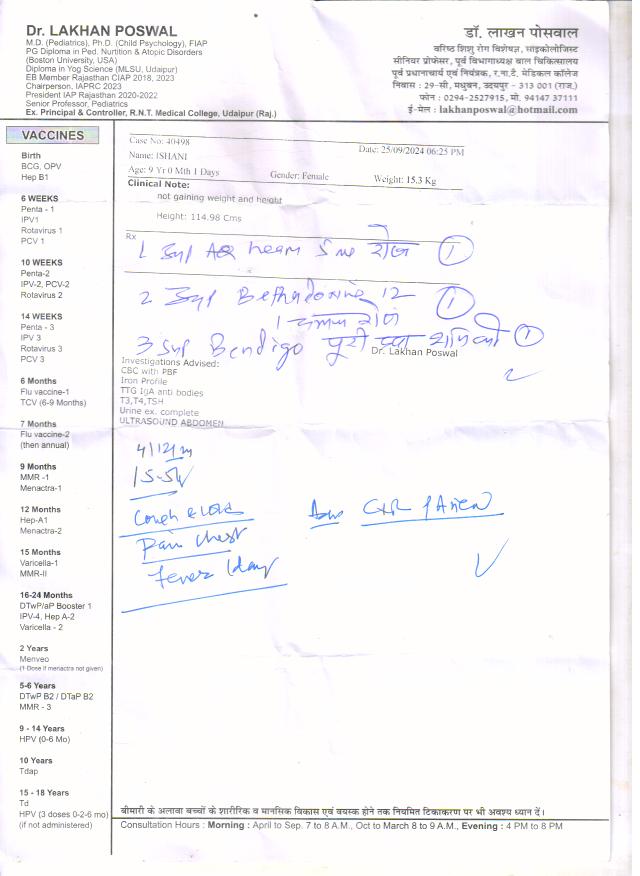 Dr. LAKHAN POSWAL
M.D. (Pediatrics), Ph.D. (Child Psychology), FIAP
PG Diploma in Ped. Nurtition & Atopic Disorders
(Boston University, USA)
Diploma in Yog Science (MLSU, Udaipur)
EB Member Rajasthan CIAP 2018, 2023
Chairperson, IAPRC 2023
President IAP Rajasthan 2020-2022
Senior Professor, Pediatrics
Ex. Principal & Controller, R.N.T. Medical College, Udaipur (Raj.)
डॉ. लाखन पोसवाल
वरिष्ठ शिशु रोग विशेषज्ञ, साइकोलोजिस्ट
सीनियर प्रोफेसर, पूर्व विभागाध्यक्ष बाल चिकित्सालय
पूर्व प्रधानाचार्य एवं नियंत्रक, र.ना.टै. मेडिकल कॉलेज
निवास : 29-सी, मधुबन, उदयपुर - 313 001 (राज.)
फोन : 0294-2527915, मो. 94147 37111
ई-मेल : lakhanposwal@hotmail.com
VACCINES
Birth
BCG, OPV
Hep B1
6 WEEKS
Penta - 1
IPV1
Rotavirus 1
PCV 1
10 WEEKS
Penta-2
IPV-2, PCV-2
Rotavirus 2
14 WEEKS
Penta - 3
IPV 3
Rotavirus 3
PCV 3
6 Months
Flu vaccine-1
TCV (6-9 Months)
7 Months
Flu vaccine-2
(then annual)
9 Months
MMR -1
Menactra-1
12 Months
Hep-A1
Menactra-2
15 Months
Varicella-1
MMR-II
16-24 Months
DTwP/aP Booster 1
IPV-4, Hep A-2
Varicella - 2
2 Years
Menveo
(1 Dose if menactra not given)
5-6 Years
DTwP B2 / DTaP B2
MMR - 3
9 - 14 Years
HPV (0-6 Mo)
10 Years
Tdap
15 - 18 Years
Td
HPV (3 doses 0-2-6 mo)
(if not administered)
Case No: 40498
Date: 25/09/2024 06:25 PM
Name: ISHANI
Age: 9 Yr 0 Mth 1 Days Gender: Female Weight: 15.3 Kg
Clinical Note:
not gaining weight and height
Height: 114.98 Cms
Rx
1 Syp heam 5 ml रोज 1
2 Syp 12 1
1 चम्मच रोज
3 Syp Bendigo पूरी 1
Dr. Lakhan Poswal
Investigations Advised:
CBC with PBF
Iron Profile
TTG IgA anti bodies
T3,T4,TSH
Urine ex. complete
ULTRASOUND ABDOMEN
4/12/24
Cough & cold
Adv CXR
Pain chest
Fever 1 day
बीमारी के अलावा बच्चों के शारीरिक व मानसिक विकास एवं वयस्क होने तक नियमित टिकाकरण पर भी अवश्य ध्यान दें।
Consultation Hours : Morning : April to Sep. 7 to 8 A.M., Oct to March 8 to 9 A.M., Evening : 4 PM to 8 PM